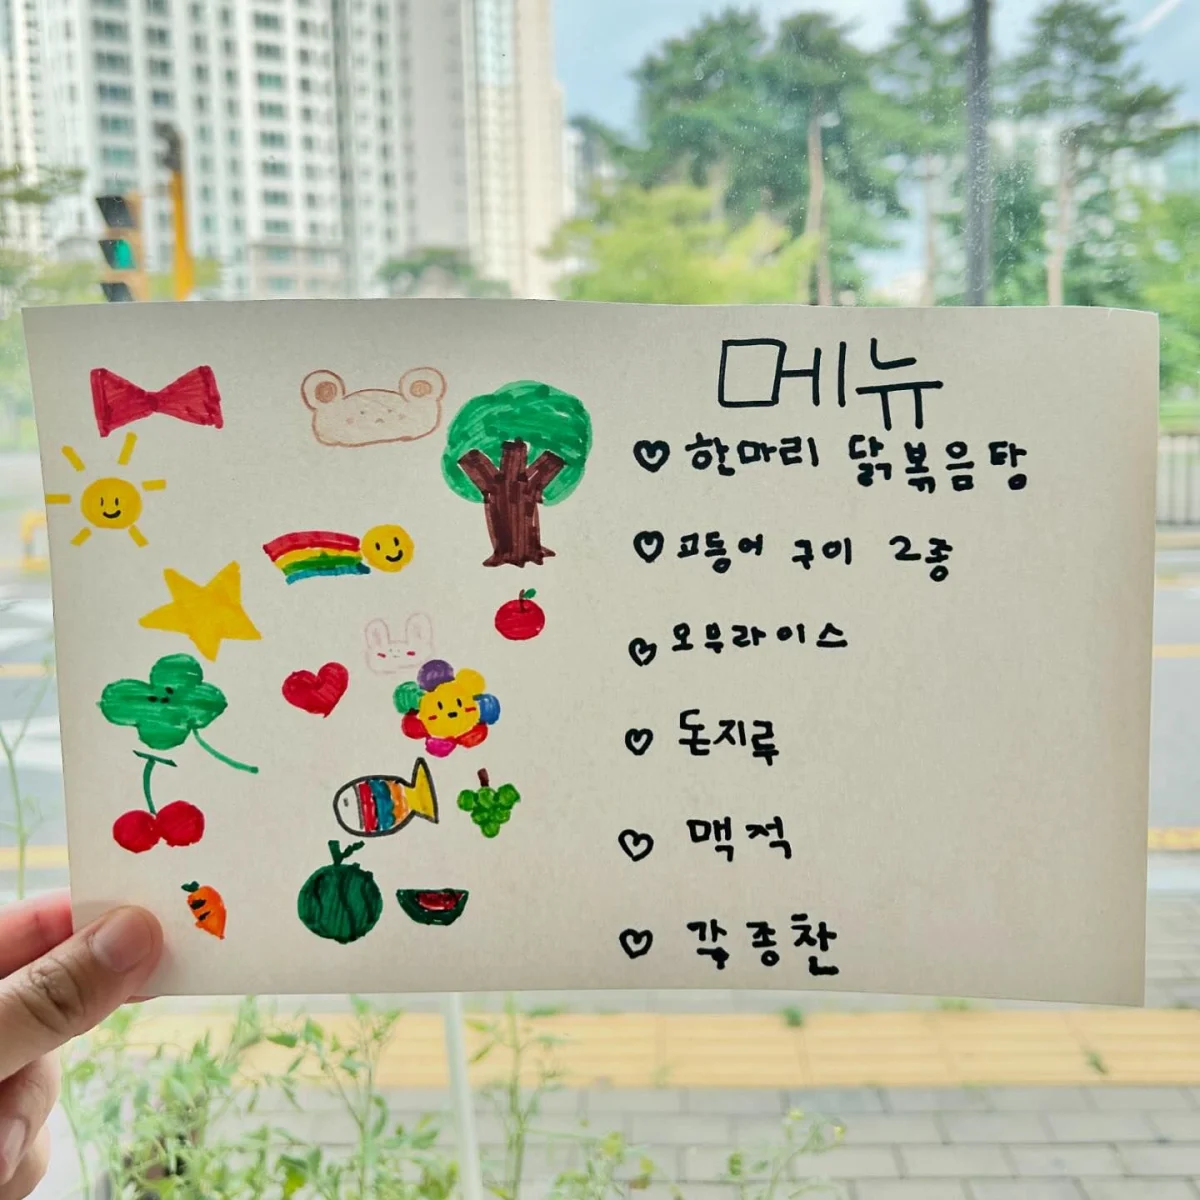 메뉴
♡ 한마리 닭볶음탕
♡ 고등어 구이 2종
♡ 오무라이스
♡ 돈지루
♡ 맥적
♡ 각종찬